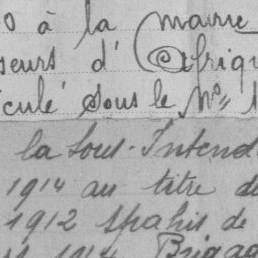 0 à la mairie
seurs d'Afriqu
iculé sous le N°
la Sous-Intend
1914 au titre d
1912 spahis de
1914 Brigad